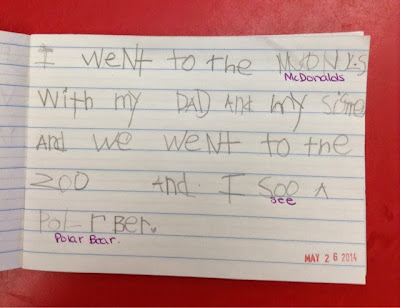 I weNt to the McDNYS
McDonalds
with my DAD AND my sister
AND we weNt to the
zoo AND. I soo A
see
POL-r Ber.
Polar Bear.
MAY 26 2014